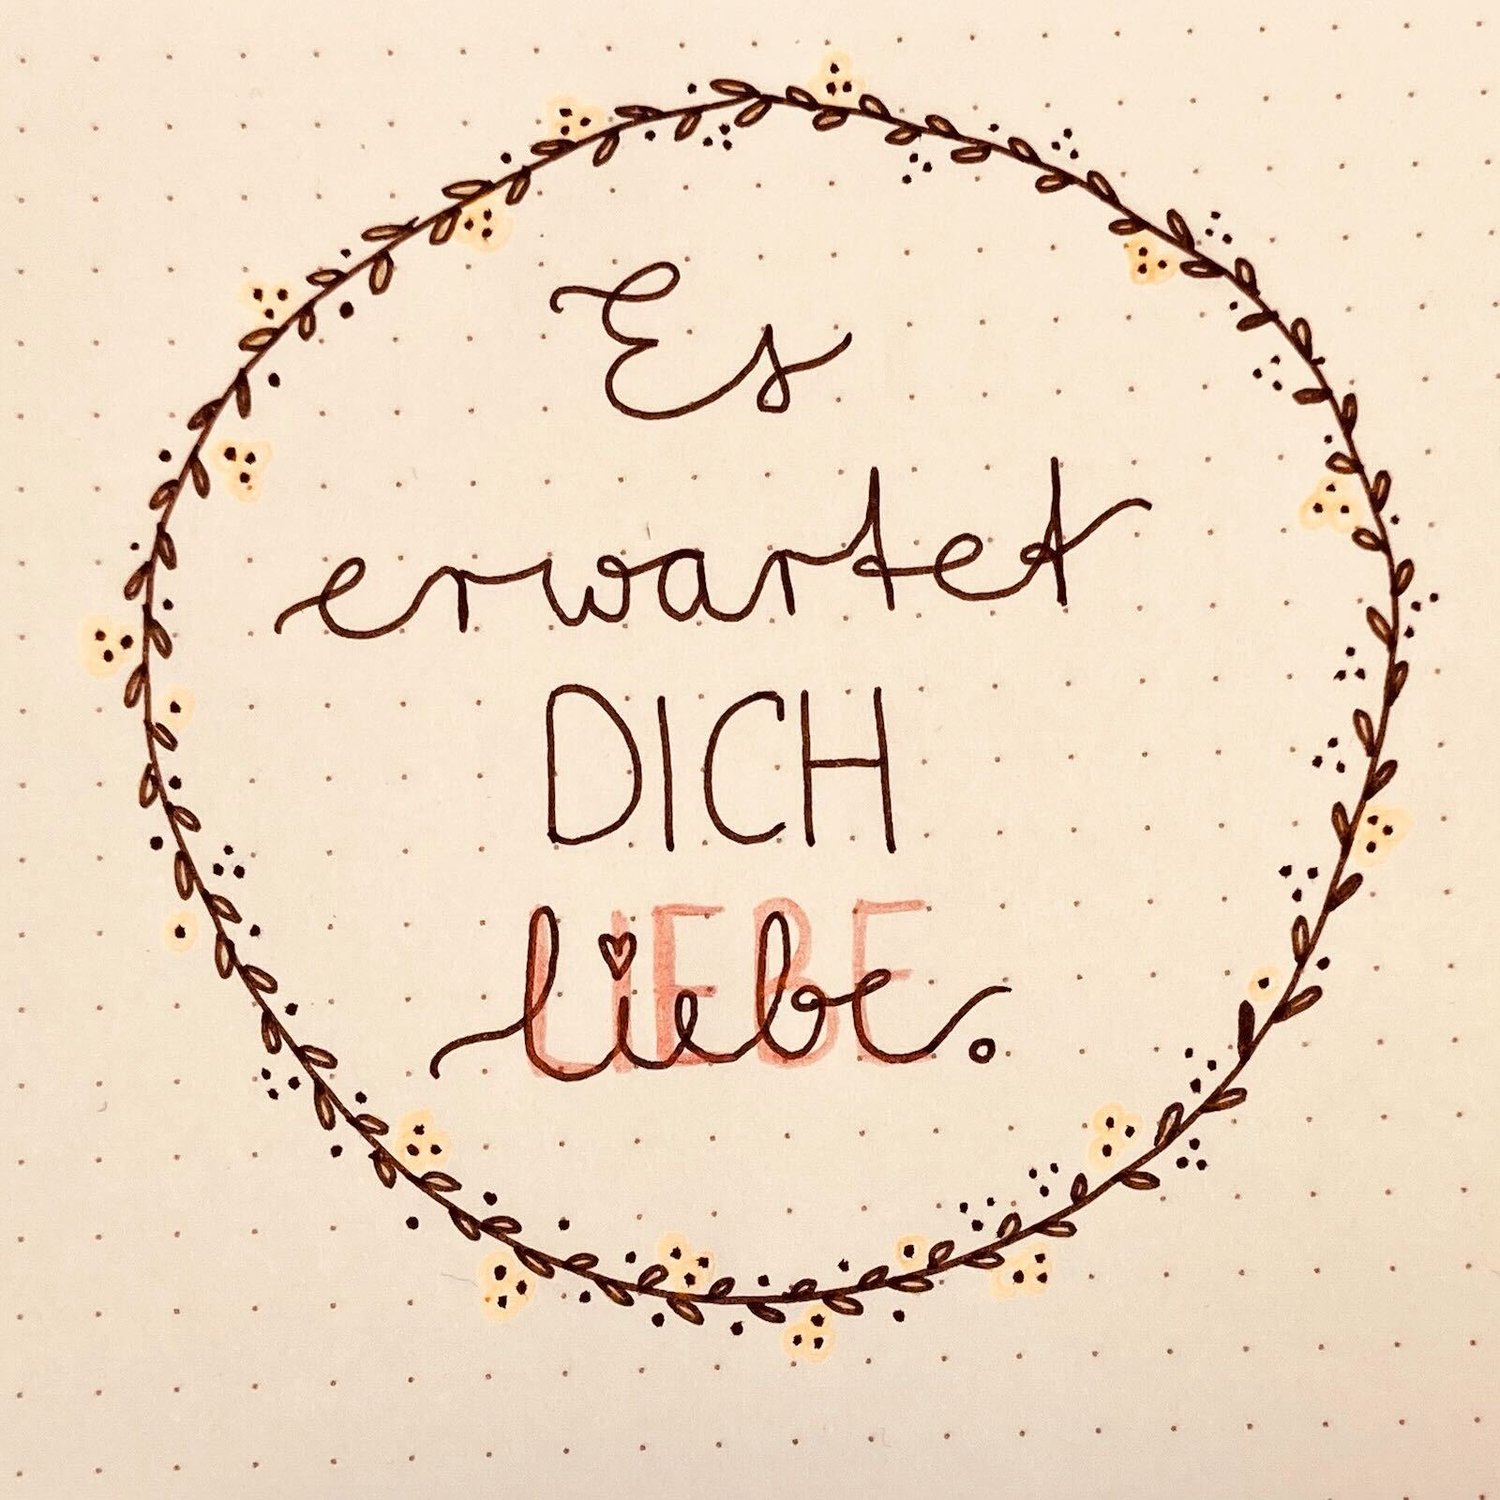 Es
erwartet
DICH
LIEBE
liebe.